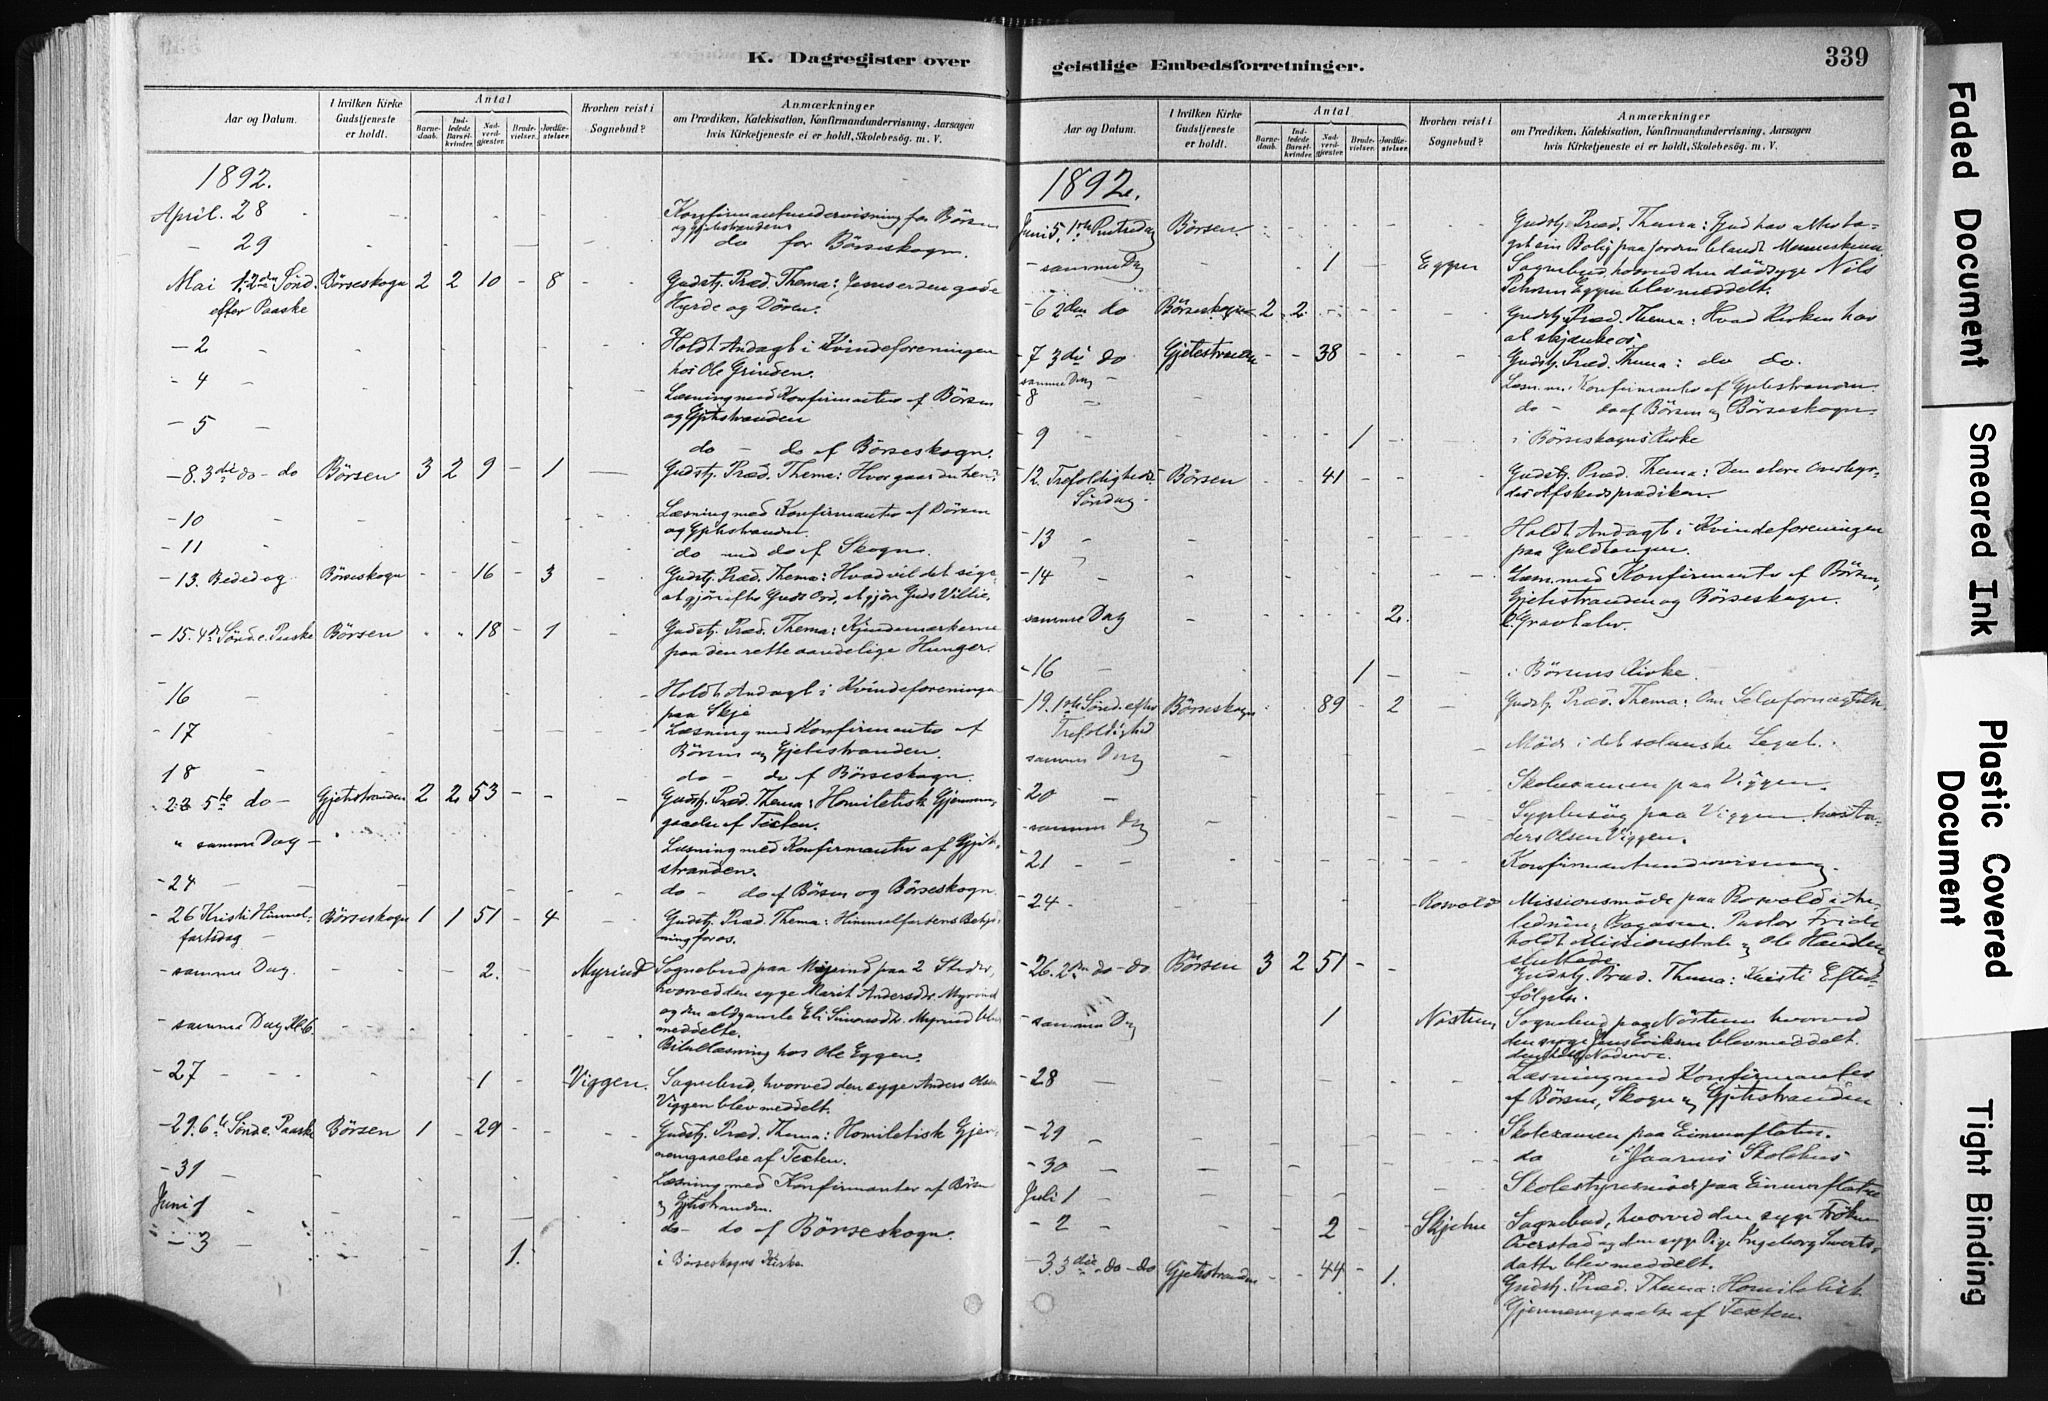 K. Dagregister over
Aar og Datum.
I hvilken Kirke Gudstjeneste er holdt.
Antal
Barnedaab.
Indledede Barselkvinder.
Nadverdgjæster.
Brudevielser.
Jordfæstelser.
Hvorhen reist i Sognebud?
Anmærkninger
om Prædiken, Katekisation, Konfirmandundervisning, Aarsagen
hvis Kirketjeneste ei er holdt, Skolebesög. m. V.
1892.
April. 28 Konfirmantundervisning for Börsen
og Gjetestranden
- 29 do for Börseskogn.
Mai 1. 2den Sönd. Börseskogn 2 2 10 - 8 Gudstj. Præd. Thema: Jesus er den gode
efter Paaske Hyrde og Dören.
- 2 Holdt Andagt i Kvindeforeningen
hos Ole Grinden.
- 4 Læsning med Konfirmanter af Börsen
og Gjetestranden
- 5 do - do af Börseskogn.
- 8. 3die do - do Börsen 3 2 9 - 1 Gudstj. Præd. Thema: Hvor gaar du hen?
- 10 Læsning med Konfirmanter af Börsen
og Gjetestranden
- 11 do med do af Skogn.
- 13. Bededag Börseskogn - - 16 - 3 Gudstj. Præd. Thema: Hvad vil det sige
at gjöre efter Guds Ord, at gjöre Guds Villie.
- 15. 4de Sönd e. Paaske Börsen 18 - 1 Gudstj. Præd. Thema: Kjendemærkerne
paa den rette aandelige Hunger.
16 Holdt Andagt i Kvindeforeningen
paa Skje
- 17 Læsning med Konfirmanter af
Börsen og Gjetestranden.
18 do - do af Börseskogn.
- 22 5te do - Gjetestranden 2 2 53 - - - Gudstj. Præd. Thema: Homiletisk Gjennem-
gaaelse af Texten.
" samme Dag - Læsning med Konfirmanter af Gjete-
stranden.
- 24 do - do af Börsen og Börseskogn
- 26 Kristi Himmel- Börseskogn 1 1 51 - 4 Gudstj. Præd. Thema: Himmelfartens Betyd-
fartsdag ning for os.
- samme Dag. 2. Myrind Sognebud paa Myrind paa 2 Steder,
hvorved den syge Marit Andersdr. Myrind
og den aldgamle Eli Simonsdr. Myrind blev
meddelte.
- samme Dag Kl 6. Bibellæsning hos Ole Eggen.
- 27 1 - Viggen. Sognebud, hvorved den syge Anders Olsen
Viggen blev meddelt.
- 29. 6te Sönd e. Paaske Börsen 1 - 29 Gudstj. Præd. Thema: Homiletisk Gjen-
nemgaaelse af Texten.
- 31 Læsning med Konfirmanter af Börsen
og Gjetestranden.
Juni 1 do - do af Börseskogn.
- 3 1. i Börseskogns Kirke
geistlige Embedsforretninger.
339
Aar og Datum.
I hvilken Kirke Gudstjeneste er holdt.
Antal
Barnedaab.
Indledede Barselkvinder.
Nadverdgjæster.
Brudevielser.
Jordfæstelser.
Hvorhen reist i Sognebud?
Anmærkninger
om Prædiken, Katekisation, Konfirmandundervisning, Aarsagen
hvis Kirketjeneste ei er holdt, Skolebesög. m. V.
1892.
Juni 5. 1ste Pintsedag Börsen. Gudstj. Præd. Thema: Gud har atter ta-
get sin Bolig paa Jorden blandt Menneskene.
- samme Dag 1 - - Eggen Sognebud, hvorved den dödssyge Nils
Eggen blev meddelt.
- 6 2den do Börseskogn 2 2 Gudstj. Præd. Thema: Hvad Kirken har
at skjænke os.
- 7 3die do Gjetestranden - - 38 Gudstj. Præd. Thema: do do.
samme Dag - Læsn. m. Konfirmanter af Gjetestranden
- 8 do - do af Börsen og Börseskogn.
- 9 1 - i Börseskogns Kirke
- 12. Trefoldigheds- Börsen - - 41 Gudstj. Præd. Thema: Den store
Söndag. Afskedsprædiken.
- 13 Holdt Andagt i Kvindeforeningen
paa
- 14 Læsn. med Konfirmanter af Börsen,
Gjetestranden og Börseskogn.
samme Dag 2. 2 Gravtaler
- 16 1 - i Börsens Kirke.
- 19. 1ste Sönd. efter Börseskogn 89 - 2 Gudstj. Præd. Thema: Om Selvfornægtelse.
Trefoldighed
samme Dag Möde i det Legat.
- 20 Skoleexamen paa Viggen.
- samme Dag Sygebesög paa Viggen hos An-
ders Olsen Viggen.
- 21 - Konfirmantundervisning.
- 24 Rosvold Missionsmöde paa Rosvold i An-
ledning Pastor
holdt Missionstale og Ole
sluttede.
- 26. 2den do - do Börsen 3 2 51 - - Gudstj. Præd. Thema: Kristi Efter-
fölgelse.
- samme Dag 1 Sognebud paa hvorved
den syge Jens Eriksen blev meddelt
den hell. Nadvere.
- 28 Læsning med Konfirmanter
af Börsen, Skogn og Gjetestranden
- 29 Skoleexamen paa Eimunsflaten.
- 30 do i Skolehus
Juli 1 Skolestyresmöde paa Eimunsflaten
- 2 2 - - Skjetne Sognebud, hvorved den syge Fröken
Överstad og den syge Pige Ingeborg Siverts-
datter blev meddelt.
- 3. 3die do - do Gjetestranden - - 44 - 1. Gudstj. Præd. Thema: Homiletisk
Gjennemgaaelse af Texten.
Faded Document
Smeared Ink
Plastic Covered
Document
Tight Binding